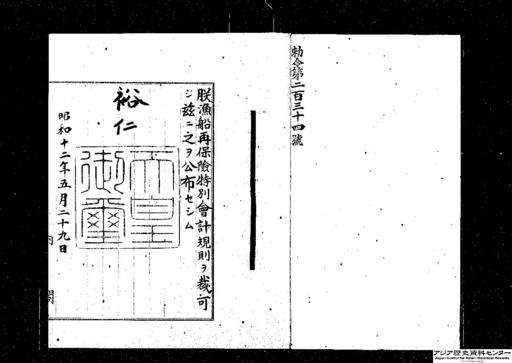 勅令第二百三十四號
朕漁船再保險特別會計規則ヲ裁可
シ茲ニ之ヲ公布セシム
裕仁
天皇
御璽
昭和十二年五月二十九日
内閣
アジア歴史資料センター
Japan Center for Asian Historical Records